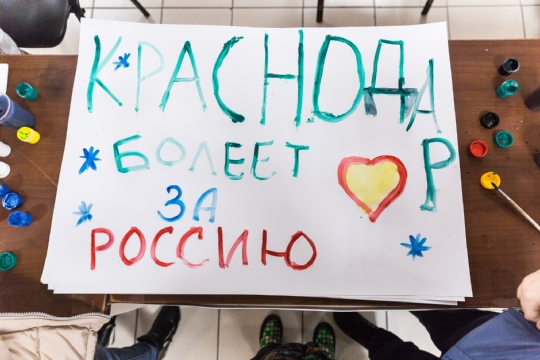 КРАСНОДАР
БОЛЕЕТ
ЗА
РОССИЮ